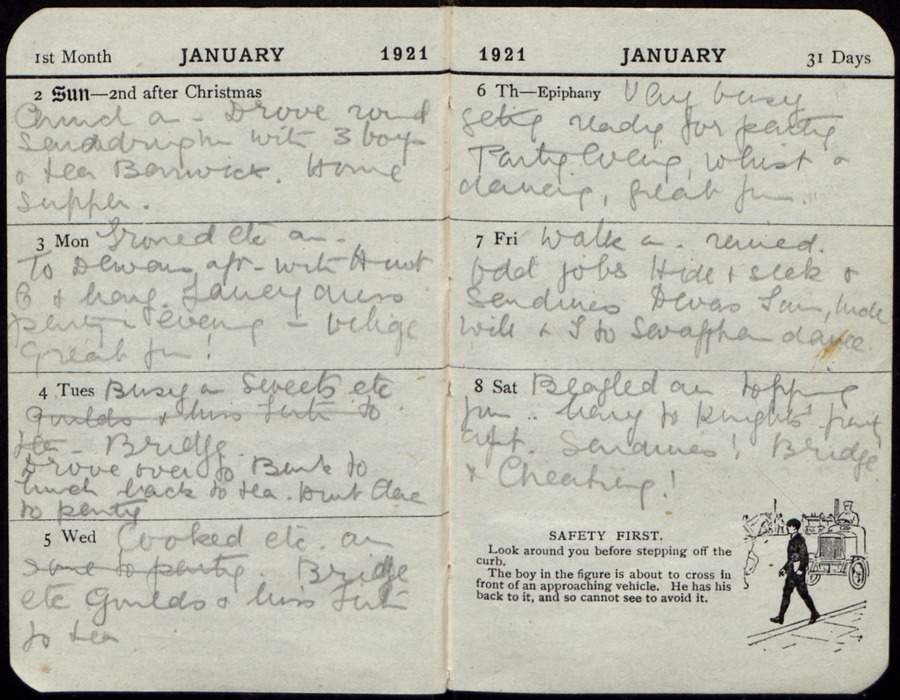 1st Month JANUARY 1921
2 Sun—2nd after Christmas
Church am - Drove round
with 3 boys
& tea Barwick. Home
Supper.
3 Mon Ironed etc am -
To aft - with Hunt
B & harry. Fancy dress
party in evening -
Great fun!
4 Tues Busy am Sweets etc
Goulds & Miss to
tea - Bridge
Drove over to Bank to
lunch back to tea. Hunt
to party
5 Wed Cooked etc. am
to party. Bridge
etc Goulds & Miss
to tea
1921 JANUARY 31 Days
6 Th—Epiphany Very busy
getting ready for party
Party Evening, whist &
dancing, great fun.
7 Fri Walk am.
Odd jobs Hide & seek &
Sardines
& I to Swaffham dance.
8 Sat Beagled am topping
fun .. harry to Knights' party
aft. Sardines! Bridge
& Cheating!
SAFETY FIRST.
Look around you before stepping off the
curb.
The boy in the figure is about to cross in
front of an approaching vehicle. He has his
back to it, and so cannot see to avoid it.